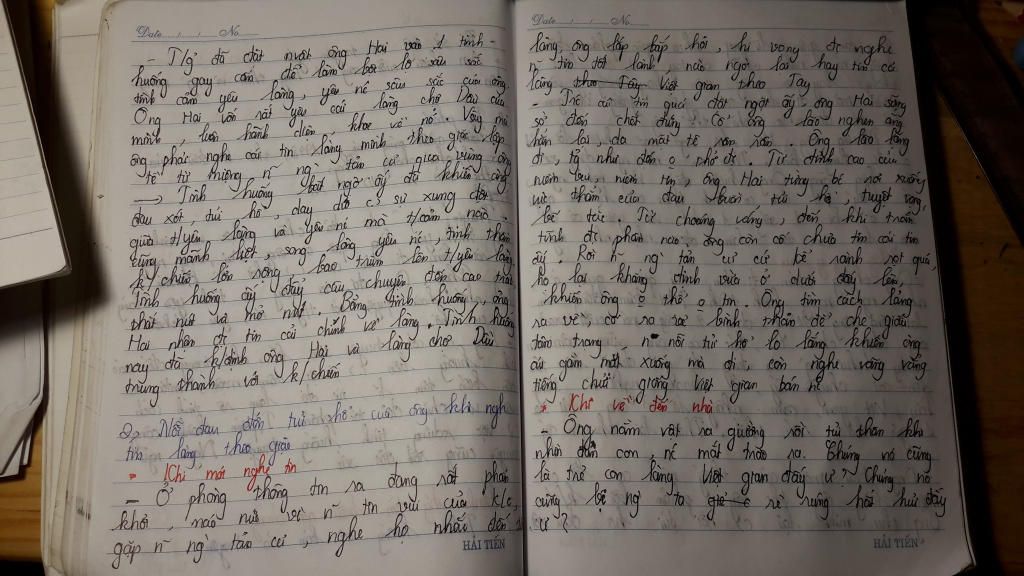 Date / / No
- T/g đã đặt nvật ông Hai vào 1 tình
huống gay cấn để làm bộc lộ sâu sắc
tình cảm yêu làng, yêu nc sâu sắc của ông.
Ông Hai vốn rất yêu cái làng chợ Dầu của
mình, luôn hãnh diện khoe về nó. Vậy mà
ông phải nghe cái tin làng mình theo giặc lập
tề từ miệng n~ ng` tản cư
→ Tình huống bất ngờ ấy đã khiến ông
đau xót tủi hổ, day dứt sự xung đột
giữa t/yêu làng và yêu nc mà t/cảm nào
cũng mãnh liệt, song yêu nc, tình thần
k/chiến lớn rộng bao trùm lên t/yêu làng
Tình huống ấy đẩy câu chuyện đến cao trào
thắt nút và mở nút. Bằng tình huống, ông
Hai nhận đc tin cải chính về làng. Tình huống
này đã k/định ông Hai và làng chợ Dầu
trung thành với k/chiến
2, Nỗi đau đớn tủi hổ của ông khi nghe
tin làng theo giặc
* Khi mới nghe tin
- Ở phòng thông tin ra đang rất phấn
khởi, náo nức vì n~ tin vui của k/c,
gặp n~ ng` tản cư, nghe họ nhắc đến
HẢI TIẾN
Date / / No
làng ông lắp bắp hỏi, hi vọng đc nghe
n~ tin tốt lành nào ngờ lại hay tin cả
làng Việt gian theo Tây
- Trc cái tin quá đột ngột ấy ông Hai sững
sờ đến chết đứng: Cổ ông lão nghẹn ắng
hẳn lại, da mặt tê rân rân. Ông lão lặng
đi, tg như đến o thở đc. Từ đỉnh cao của
niềm vui, niềm tin, ông Hai từng bc rơi xuống
vực thẳm của đau buồn, tủi hổ, tuyệt vọng,
bế tắc. Từ choáng váng, đến khi trấn
tĩnh đc phần nào, ông còn cố chưa tin cái tin
ấy. Rồi n~ ng` tản cư cứ kể rành rọt quá,
họ lại khẳng định vừa ở dưới ấy lên
khiến ông o thể o tin. Ông tìm cách lảng
ra về, cố ra vẻ bình thản để che giấu
tâm trạng n nỗi tủi hổ lo lắng khiến ông
cúi gằm mặt xuống mà đi, còn nghe văng vẳng
tiếng chửi giống Việt gian bán nc
* Khi về đến nhà
- Ông nằm vật ra giường rồi tủi thân khi
nhìn đàn con, nc mắt trào ra. Chúng nó cũng
là trẻ con làng Việt gian đấy ư? Chúng nó
cũng bị ng ta rẻ rúng hắt hủi đấy
ư?
HẢI TIẾN